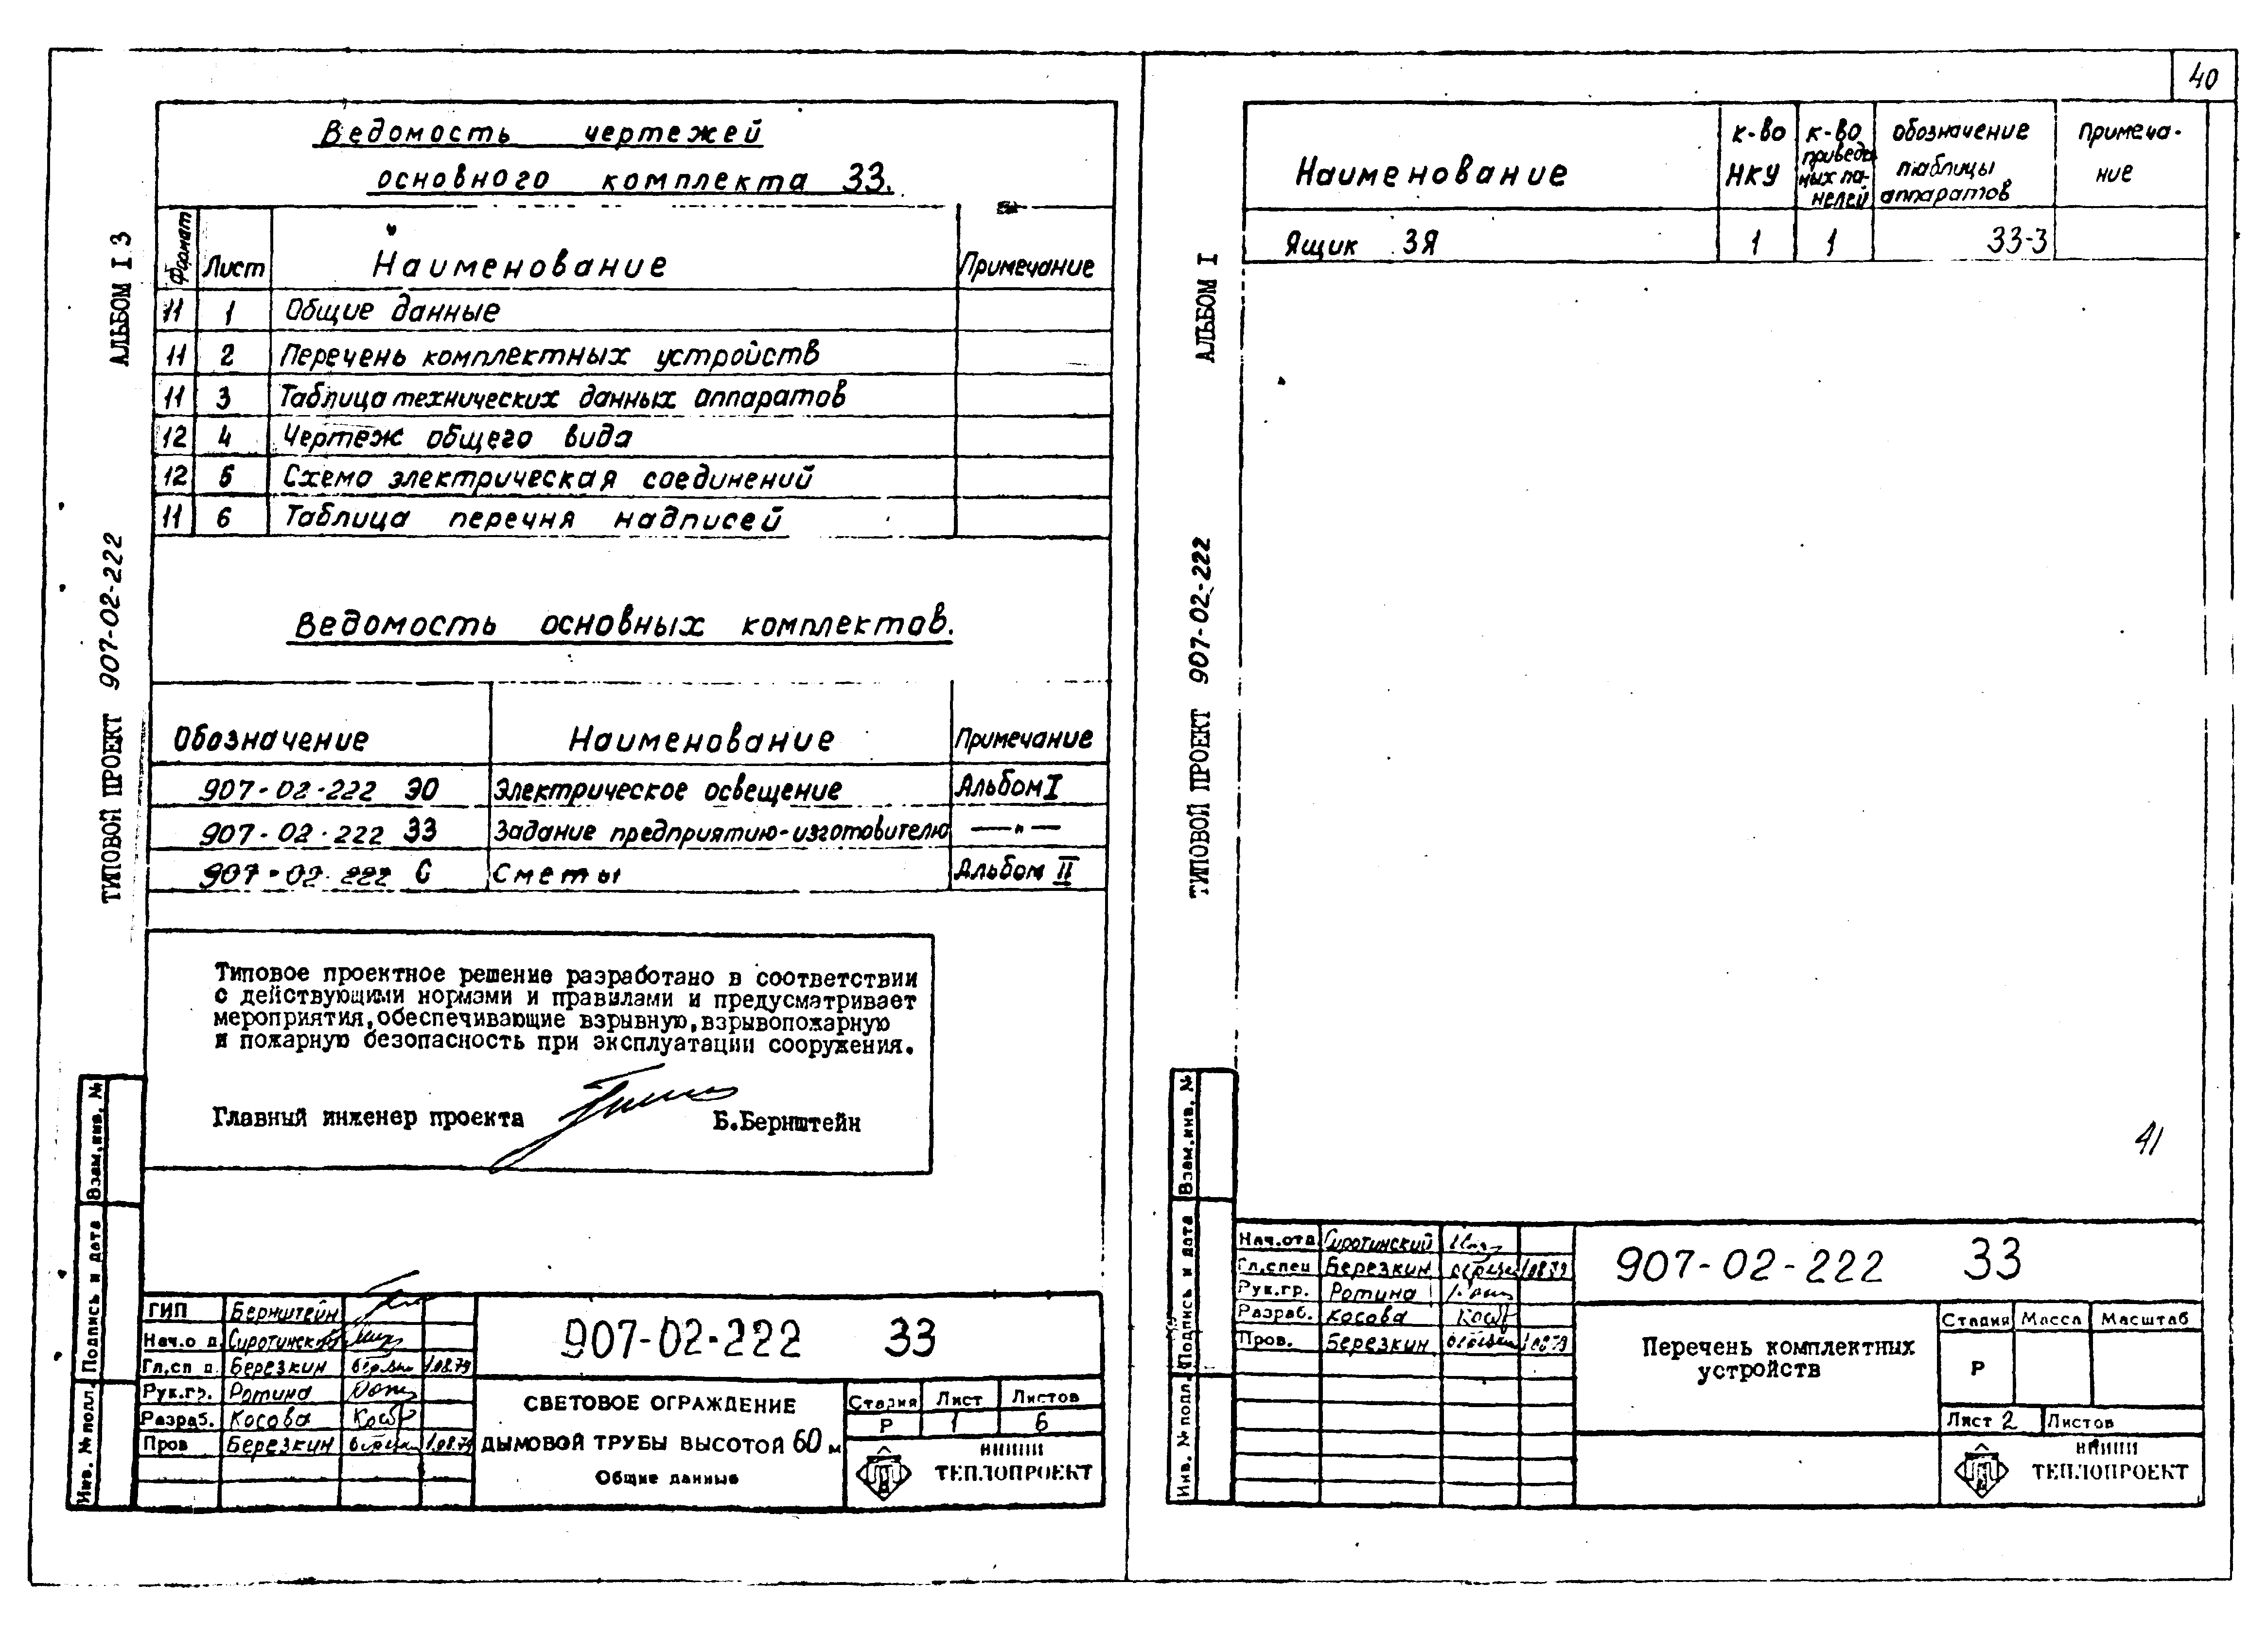 40
Ведомость чертежей
основного комплекта ЗЗ.
Формат Лист Наименование Примечание
11 1 Общие данные
11 2 Перечень комплектных устройств
11 3 Таблица технических данных аппаратов
12 4 Чертеж общего вида
12 5 Схема электрическая соединений
11 6 Таблица перечня надписей
Ведомость основных комплектов.
Обозначение Наименование Примечание
907-02-222 ЭО Электрическое освещение Альбом I
907-02-222 ЗЗ Задание предприятию-изготовителю —"—
907-02-222 С Сметы Альбом II
Типовое проектное решение разработано в соответствии
с действующими нормами и правилами и предусматривает
мероприятия,обеспечивающие взрывную,взрывопожарную
и пожарную безопасность при эксплуатации сооружения.
Главный инженер проекта Б.Бернштейн
ТИПОВОЙ ПРОЕКТ 907-02-222 АЛЬБОМ I 3
Инв. № подл. Подпись и дата Взам.инв. №
ГИП Бернштейн
Нач.о д. Сиротинский
Гл.сп ц. Березкин 1.08.79
Рук.гр. Ротина
Разраб. Косова
Пров Березкин 1.08.79
907-02-222 ЗЗ
СВЕТОВОЕ ОГРАЖДЕНИЕ
ДЫМОВОЙ ТРУБЫ ВЫСОТОЙ 60 м
Общие данные
Стадия Лист Листов
Р 1 6
ВНИПИ
ТЕПЛОПРОЕКТ
Наименование
к-во
НКУ
к-во
приведе
ных па-
нелей
обозначение
таблицы
аппаратов
Примеча-
ние
Ящик ЗЯ 1 1 ЗЗ-3
ТИПОВОЙ ПРОЕКТ 907-02-222 АЛЬБОМ I
41
Инв. № подл. Подпись и дата Взам.инв. №
Нач.отд Сиротинский
Гл.спец Березкин 1.08.79
Рук.гр. Ротина
Разраб. Косова
Пров. Березкин 1.08.79
907-02-222 ЗЗ
Перечень комплектных
устройств
Стадия Масса Масштаб
Р
Лист 2 Листов
ВНИПИ
ТЕПЛОПРОЕКТ